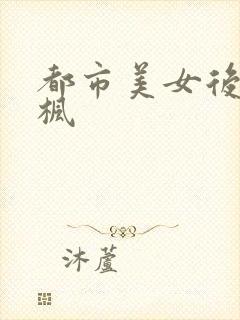 都市美女後
楓
沐蘆